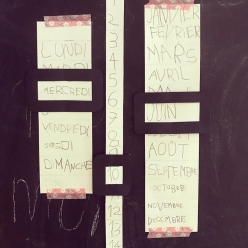 LUNDI
MARDI
MERCREDI
VENDREDI
DIMANCHE
2
3
4
5
6
7
8
9
10
12
13
14
JANVIER
FÉVRIER
MARS
AVRIL
JUIN
AOUT
SEPTEMBRE
OCTOBRE
NOVEMBRE
DECEMBRE